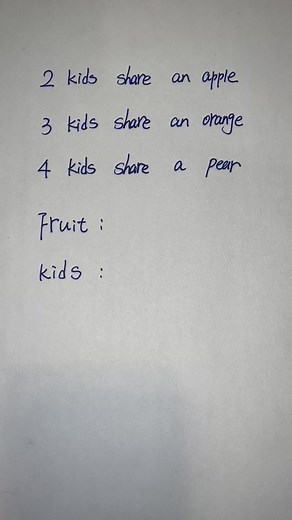 2 kids share an apple
3 kids share an orange
4 kids share a pear
Fruit :
kids :